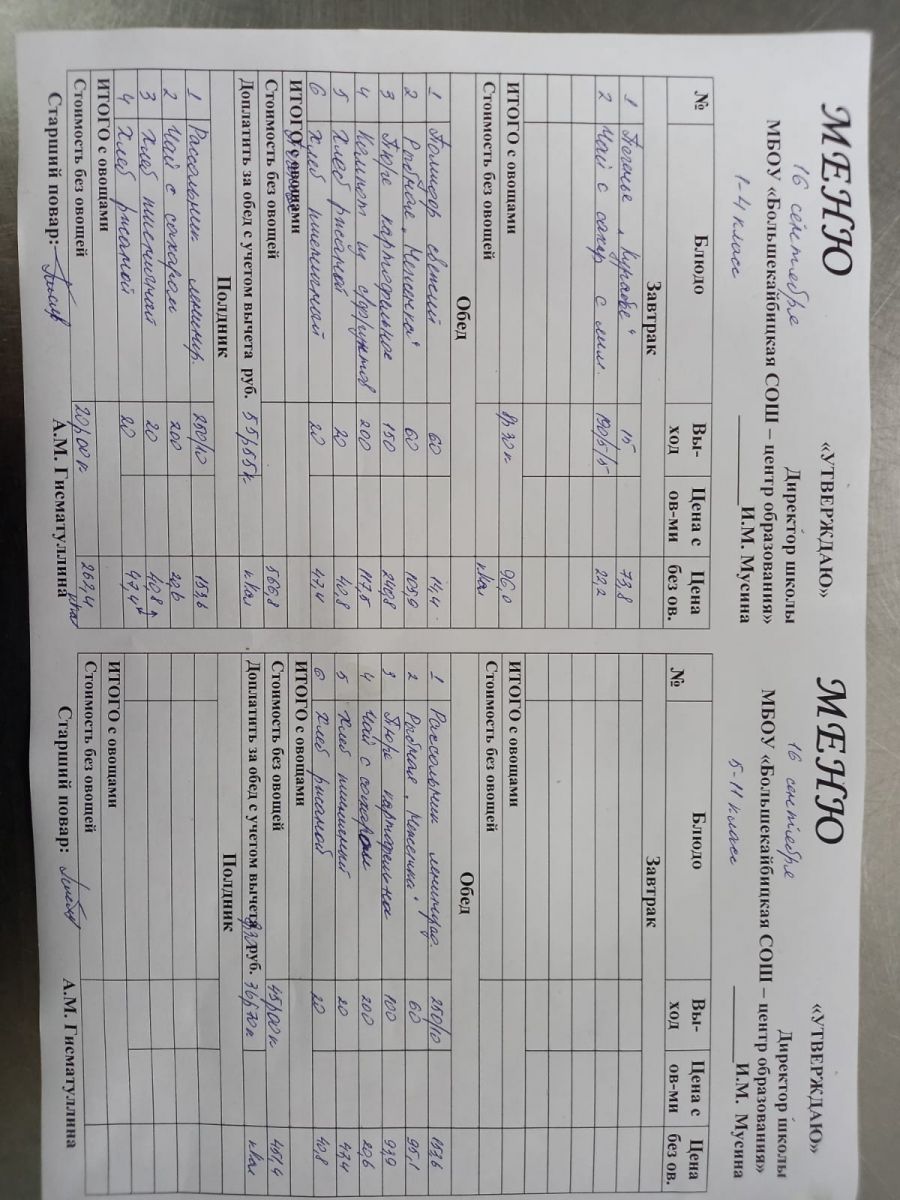 МЕНЮ
16 сентября
«УТВЕРЖДАЮ»
Директор школы
МБОУ «Большекайбицкая СОШ – центр образования»
И.М. Мусина
1-4 класс
№ Блюдо Вы-ход Цена с ов-ми Цена без ов.
Завтрак
1 Печенье „Курабье“ 15 73,8
2 Чай с сахар с лим. 190/5/5 22,2
ИТОГО с овощами 8р30к 96,0
Стоимость без овощей кКал
Обед
1 Помидор свежий 60 14,4
2 Рыбная „Неженка“ 60 105,9
3 Пюре картофельное 150 240,8
4 Компот из с/фруктов 200 117,5
5 Хлеб ржаной 20 40,8
6 Хлеб пшеничный 20 47,4
ИТОГО с овощами
Стоимость без овощей 566,8
Доплатить за обед с учетом вычета руб. 55р55к кКал
Полдник
1 Рассольник ленингр. 250/10 153,6
2 Чай с сахаром 200 20,6
3 Хлеб пшеничный 20 40,8
4 Хлеб ржаной 20 47,4
ИТОГО с овощами
Стоимость без овощей 20р00к 262,4
кКал
Старший повар: А.М. Гисматуллина
МЕНЮ
16 сентября
«УТВЕРЖДАЮ»
Директор школы
МБОУ «Большекайбицкая СОШ – центр образования»
И.М. Мусина
5-11 класс
№ Блюдо Вы-ход Цена с ов-ми Цена без ов.
Завтрак
ИТОГО с овощами
Стоимость без овощей
Обед
1 Рассольник ленинград. 250/10 153,6
2 Рыбная „Неженка“ 60 95,1
3 Пюре картофельное 100 93,9
4 Чай с сахаром 200 20,6
5 Хлеб пшеничный 20 47,4
6 Хлеб ржаной 20 40,8
ИТОГО с овощами
Стоимость без овощей 45р00к 451,4
Доплатить за обед с учетом вычета руб. 36р70к кКал
Полдник
ИТОГО с овощами
Стоимость без овощей
Старший повар: А.М. Гисматуллина